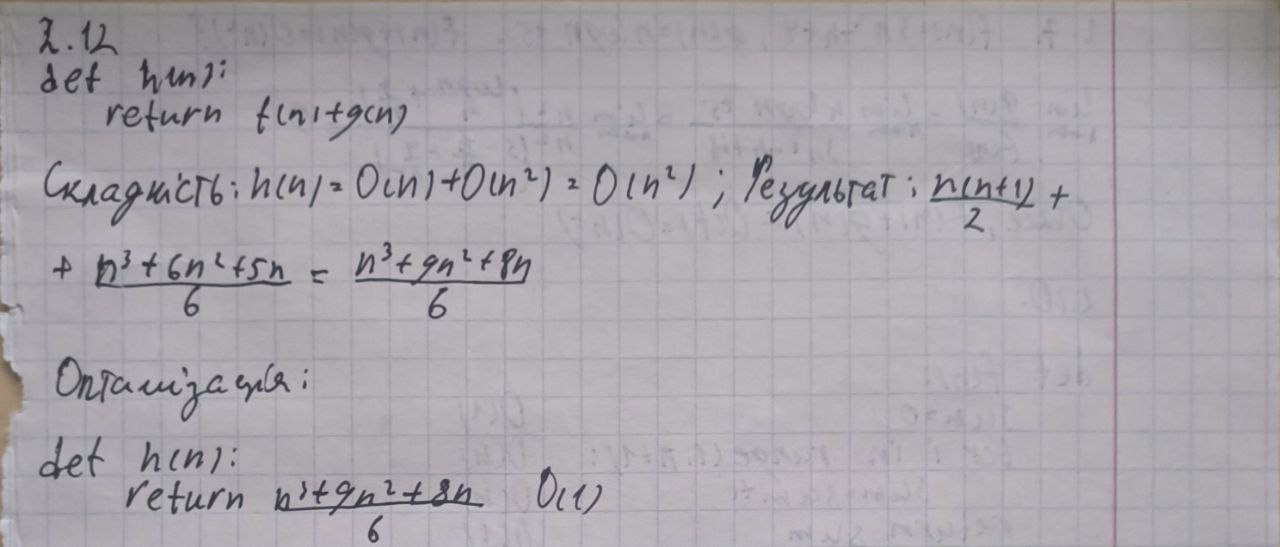 2.12
def h(n):
return f(n)+g(n)
Складність: h(n) = O(n)+O(n²) = O(n²) ; Результат: n(n+1)/2 +
+ n³+6n²+5n/6 = n³+9n²+8n/6
Оптимізація:
def h(n):
return n³+9n²+8n/6 O(1)